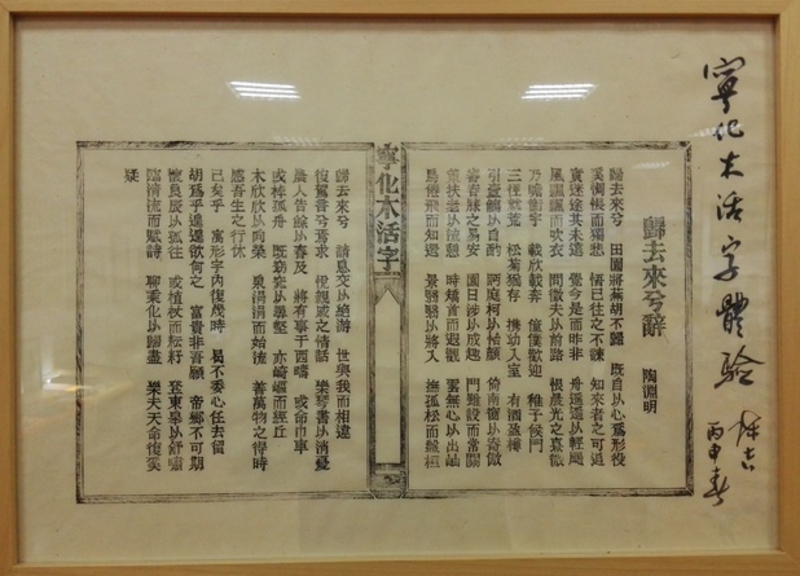 寧化木活字體驗
丙申春
歸去來兮辭
陶淵明
歸去來兮 田園將蕪胡不歸 既自以心爲形役
奚惆悵而獨悲 悟已往之不諫 知來者之可追
實迷途其未遠 覺今是而昨非 舟遥遥以輕颺
風飄飄而吹衣 問徵夫以前路 恨晨光之熹微
乃瞻衡宇 載欣載奔 僮僕歡迎 稚子候門
三徑就荒 松菊猶存 携幼入室 有酒盈樽
引壺觴以自酌 眄庭柯以怡顔 倚南窗以寄傲
審容膝之易安 園日涉以成趣 門雖設而常關
策扶老以流憩 時矯首而遐觀 雲無心以出岫
鳥倦飛而知還 景翳翳以將入 撫孤松而盤桓
寧化木活字
歸去來兮 請息交以絶游 世與我而相違
復駕言兮焉求 悦親戚之情話 樂琴書以消憂
農人告餘以春及 將有事于西疇 或命巾車
或棹孤舟 既窈窕以尋壑 亦崎嶇而經丘
木欣欣以向榮 泉涓涓而始流 善萬物之得時
感吾生之行休
已矣乎 寓形字内復幾時 曷不委心任去留
胡爲乎遑遑欲何之 富貴非吾願 帝鄉不可期
懷良辰以孤往 或植杖而耘耔 登東皋以舒嘯
臨清流而賦詩 聊乘化以歸盡 樂夫天命復奚
疑